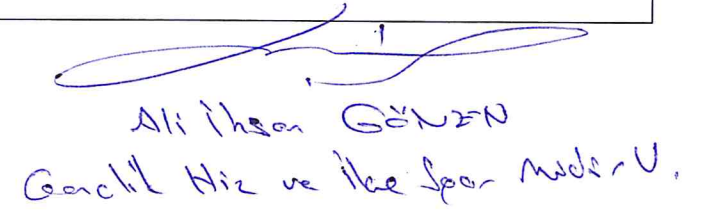 Ali İhsan GÖNEN
Gençlik Hiz ve İlçe Spor Müdür V.